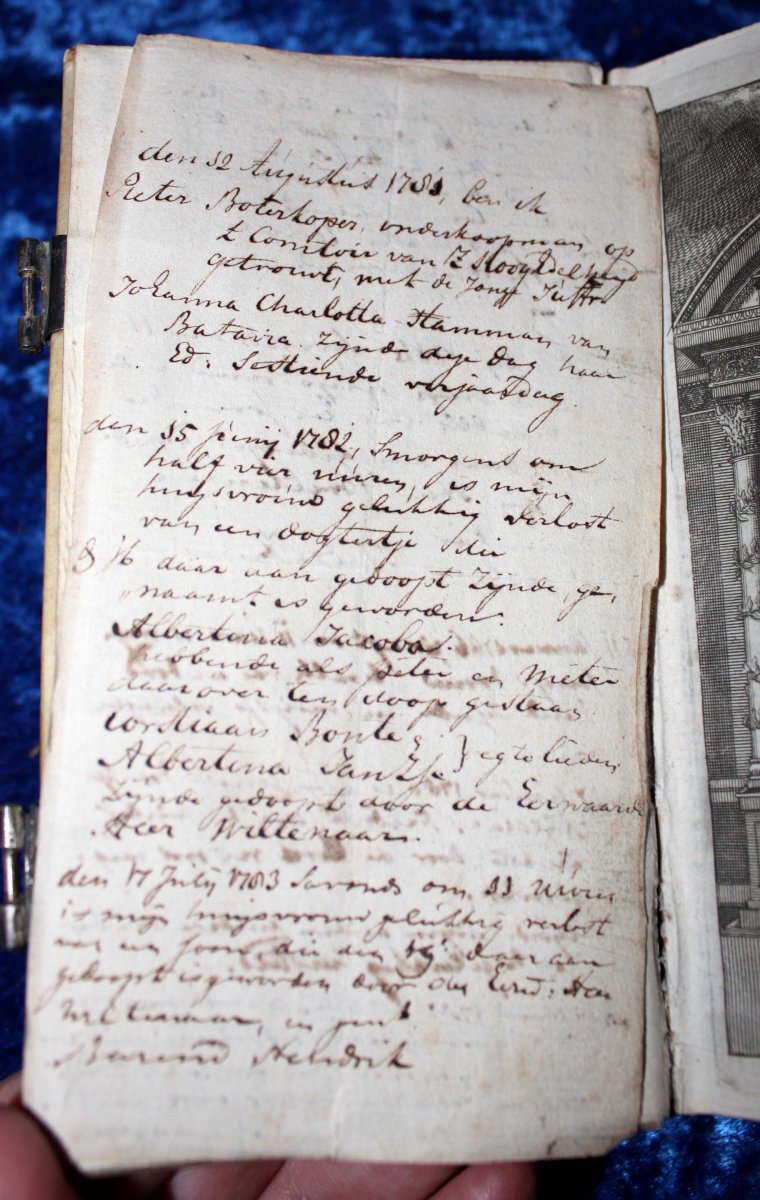 den 12 Augustus 1781, ben ik
Pieter Boterkoper, onderkoopman op
t Comtoir van Z Hoog Edelheijd
getrouwt, met de Jong Juffr
Johanna Charlotta Hamman van
Batavia. Zijnde deze dag haar
Ed: Sestiende verjaardag.
den 15 junij 1782, Smorgens om
half vier uuren, is mijn
huijsvrouw gelukkig verlost
van een dogtertje die
d 16 daar aan gedoopt Zijnde, ge,
naamt is geworden.
Albertina Jacoba.
hebbende als peter en meter
daar over ten doop gestaan
Corstiaan Bonte
Albertina Jantze } egte lieden,
Zijnde gedoopt door de Eerwaarde
Heer Wiltenaar.
den 17 Julij 1783 Savonds om 11 uuren
is mijn huijsvrouw gelukkig verlost
van een soon, die den 19 daar aan
gedoopt is geworden door den Eerw: Heer
Wiltenaar, en gent
Barend Hendrik